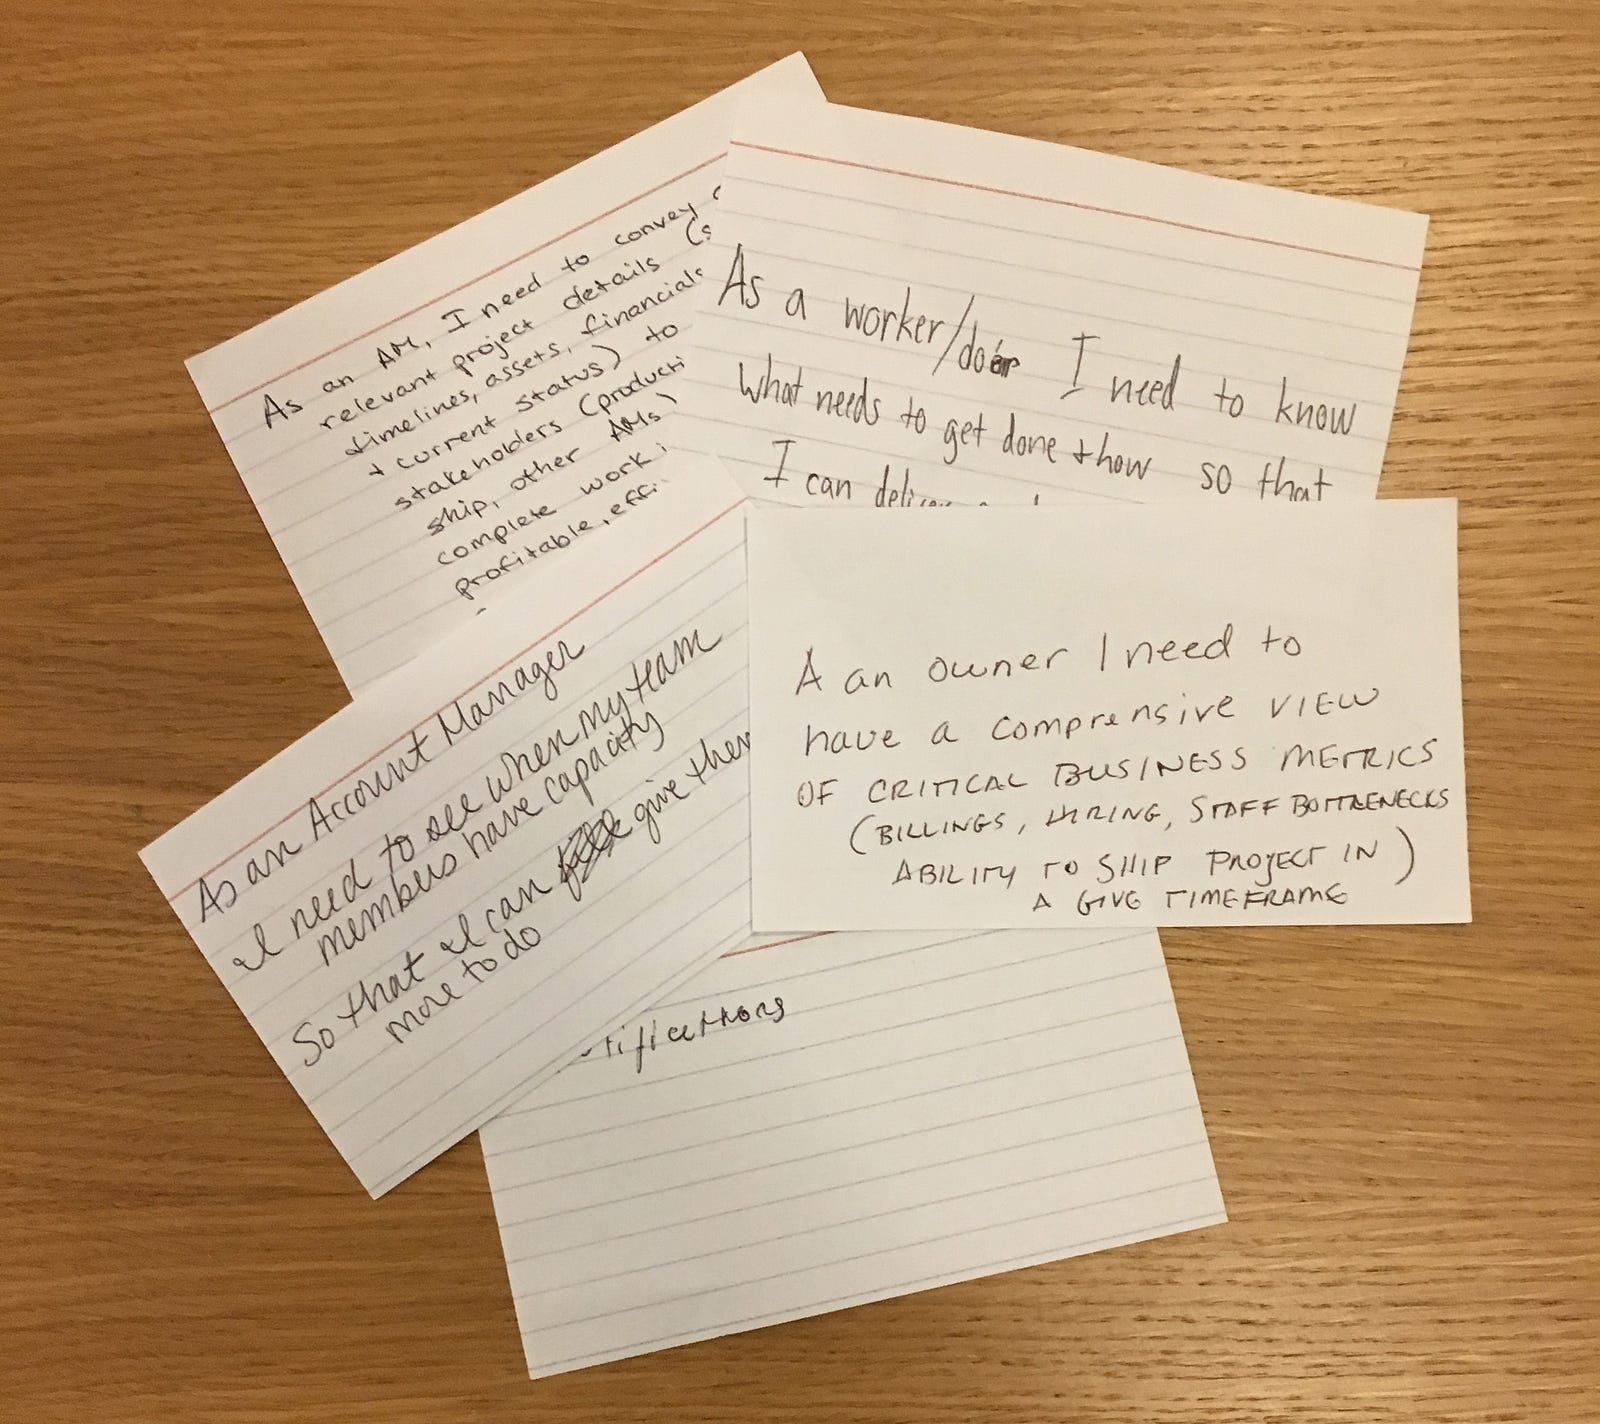 As an AM, I need to convey
relevant project details
timelines, assets, financials
+ current status) to
stakeholders (producti
ship, other AMs)
complete work
profitable, effi
As a worker/doer I need to know
what needs to get done + how so that
I can deliver
As an Account Manager
I need to see when my team
members have capacity
So that I can give them
more to do
A an owner I need to
have a comprensive VIEW
OF CRITICAL BUSINESS METRICS
(BILLINGS, HIRING, STAFF BOTTLENECKS
ABILITY TO SHIP PROJECT IN )
A GIVE TIMEFRAME
tifications